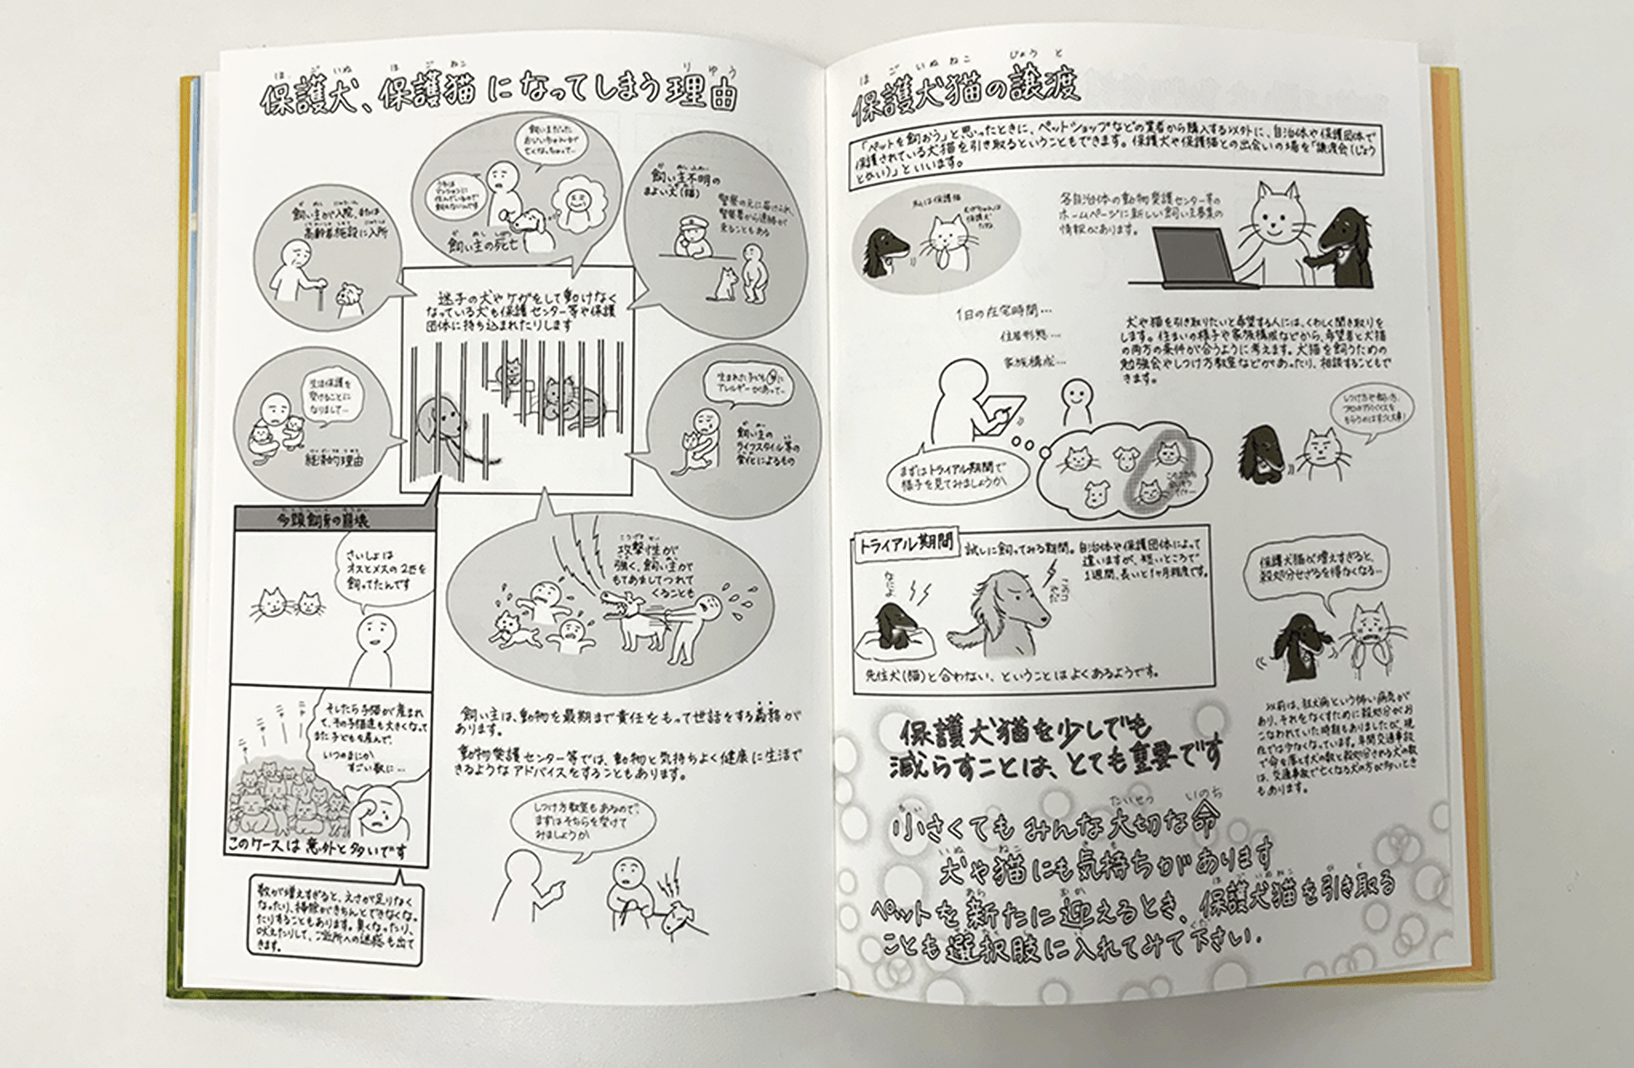 保護犬、保護猫になってしまう理由
ほごいぬ ほごねこ りゆう
飼い主だった
おじいちゃん
亡くなっちゃって…
うちは
マンションに
住んでいるので
飼えないんです
飼い主の死亡
飼い主が入院、または
高齢者施設に入所
飼い主不明の
まよい犬(猫)
警察の元に届けられ、
警察署から連絡が
来ることもある
迷子の犬やケガをして動けなく
なっている犬も保護センター等や保護
団体に持ち込まれたりします
生活保護を
受けることに
なりまして…
経済的理由
生まれた子どもに
アレルギーがあって…
飼い主の
ライフスタイル等の
変化によるもの
多頭飼育の崩壊
さいしょは
オスとメスの2匹を
飼ってたんです
そしたら子猫が産まれ
て、その子猫達も大きくなって
また子どもを産んで、
いつのまにか
すごい数に…
ニャー ニャー ニャー
このケースは意外と多いです
数が増えすぎると、えさが足りなく
なったり、掃除がきちんとできなくなっ
たりすることもあります。臭くなったり、
吠えたりして、ご近所への迷惑も出て
きます。
攻撃性が
強く、飼い主が
もてあましてつれて
くることも
飼い主は、動物を最期まで責任をもって世話をする義務が
あります。
動物愛護センター等では、動物と気持ちよく健康に生活で
きるようなアドバイスをすることもあります。
しつけ方教室もあるので、
まずはそちらを受けて
みましょうか
保護犬猫の譲渡
ほごいぬねこ じょうと
「ペットを飼おう」と思ったときに、ペットショップなどの業者から購入する以外に、自治体や保護団体で
保護されている犬猫を引き取るということもできます。保護犬や保護猫との出会いの場を「譲渡会(じょう
とかい)」といいます。
私は保護猫
保護犬
だね
各自治体の動物愛護センター等の
ホームページに新しい飼い主募集の
情報があります。
1日の在宅時間…
住居形態…
家族構成…
犬や猫を引き取りたいと希望する人には、くわしく聞き取りを
します。住まいの様子や家族構成などから、希望者と犬猫
の両方の条件が合うように考えます。犬猫を飼うための
勉強会やしつけ方教室などがあったり、相談することもで
きます。
まずはトライアル期間で
様子を見てみましょうか
しつけ方や飼い方、
プロのアドバイスを
もらうのはすごく大事!
トライアル期間
試しに飼ってみる期間。自治体や保護団体によって
違いますが、短いところで
1週間、長いと1ヶ月程度です。
なによ
先住犬(猫)と合わない、ということはよくあるようです。
保護犬猫が増えすぎると、
殺処分せざるを得なくなる…
以前は、狂犬病という怖い病気が
あり、それをなくすために殺処分がお
こなわれていた時期もありましたが、現
在では少なくなっています。年間交通事故
で命を落とす犬の数と殺処分される犬の数
は、交通事故で亡くなる犬の方が多いとき
もあります。
保護犬猫を少しでも
減らすことは、とても重要です
小さくてもみんな大切な命
ちい たいせつ いのち
犬や猫にも気持ちがあります
いぬ ねこ きも
ペットを新たに迎えるとき、保護犬猫を引き取る
あら むか ほごいぬねこ ひ と
ことも選択肢に入れてみて下さい。